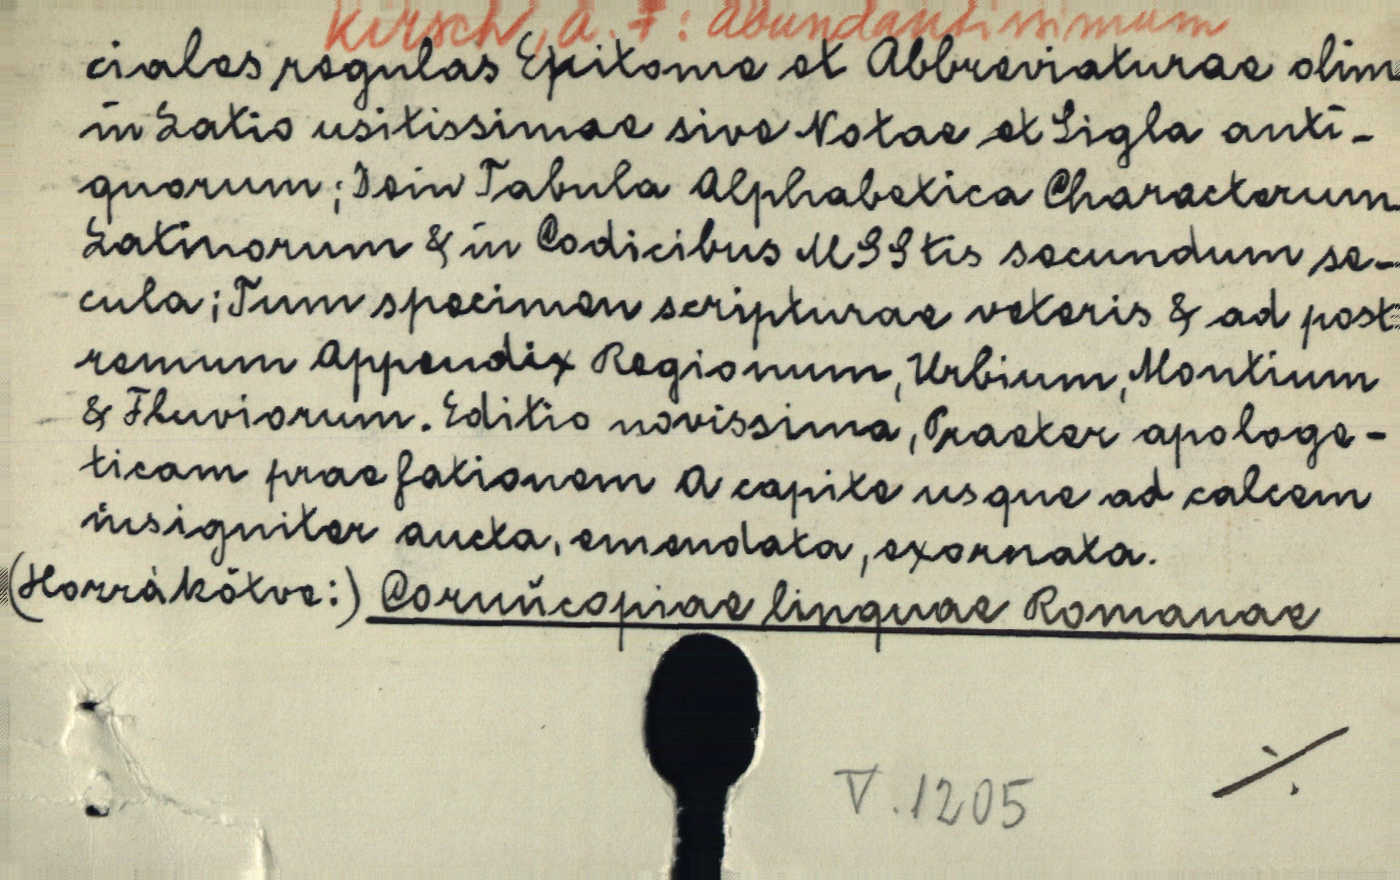 Kirsch, A. F.: Abundantissimum
ciales regulas Epitome et Abbreviaturae olim
in Latio usitissimae sive Notae et Sigla anti-
quorum; Dein Tabula Alphabetica Characterum
Latinorum & in Codicibus MSStis secundum se-
cula; Tum specimen scripturae veteris & ad post
remum Appendix Regionum, Urbium, Montium
& Fluviorum. Editio novissima, Praeter apologe-
ticam praefationem A capite usque ad calcem
insigniter aucta, emendata, exornata.
(Horrákötve:) Cornucopiae linguae Romanae
V. 1205
./.